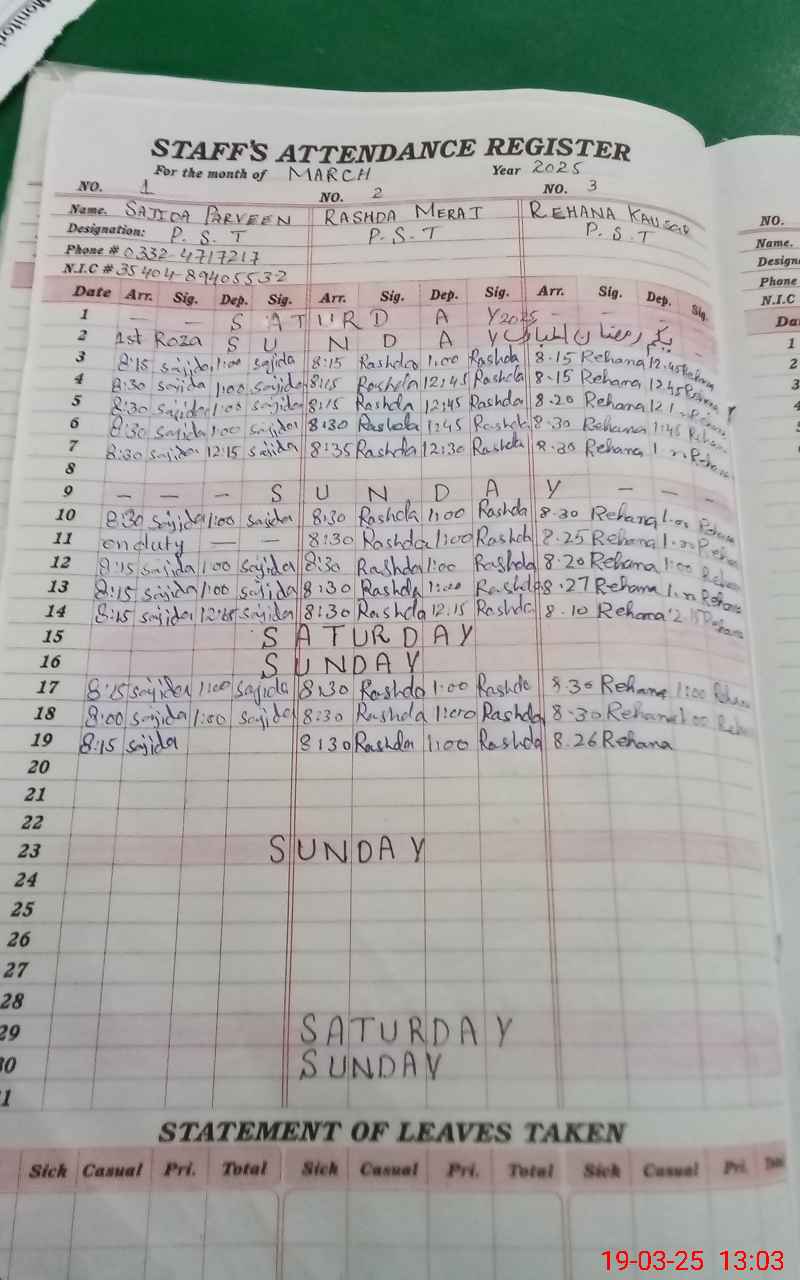 Monitori
STAFF'S ATTENDANCE REGISTER
For the month of MARCH Year 2025
NO. 1 NO. 2 NO. 3
Name. SAJIDA PARVEEN RASHDA MERAJ REHANA KAUSAR
Designation: P.S.T P.S.T P.S.T
Phone # 0332-4717217
N.I.C # 35404-89405532
Date Arr. Sig. Dep. Sig. Arr. Sig. Dep. Sig. Arr. Sig. Dep. Sig.
1 — — S A T U R D A Y 2025 — — — —
2 1st Roza S U N D A Y یکم رمضان المبارک
3 8:15 sajida 1:00 sajida 8:15 Rashda 1:00 Rashda 8.15 Rehana 12.45 Rehana
4 8:30 sajida 1:00 sajida 8:15 Rashda 12:45 Rashda 8.15 Rehana 12.45 Rehana
5 8:30 sajida 1:00 sajida 8:15 Rashda 12:45 Rashda 8.20 Rehana
6 8:30 sajida 1:00 sajida 8:30 Rashda 1:45 Rashda 8.30 Rehana 1:45 Rehana
7 8:30 sajida 12:15 sajida 8:35 Rashda 12:30 Rashda 8.30 Rehana Rehana
8
9 — — — S U N D A Y — — —
10 8:30 sajida 1:00 sajida 8:30 Rashda 1:00 Rashda 8.30 Rehana 1.00 Rehana
11 on duty — — 8:30 Rashda 1:00 Rashda 8.25 Rehana Rehana
12 8:15 sajida 1:00 sajida 8:30 Rashda 1:00 Rashda 8.20 Rehana 1:00 Rehana
13 8:15 sajida 1:00 sajida 8:30 Rashda 1:00 Rashda 8.27 Rehana Rehana
14 8:15 sajida sajida 8:30 Rashda 12.15 Rashda 8.10 Rehana Rehana
15 S A T U R D A Y
16 S U N D A Y
17 8:15 sajida 1:00 sajida 8:30 Rashda 1:00 Rashda 8.30 Rehana 1:00 Rehana
18 8:00 sajida 1:00 sajida 8:30 Rashda 1:00 Rashda 8.30 Rehana 1:00 Rehana
19 8:15 sajida 8:30 Rashda 1:00 Rashda 8.26 Rehana
20
21
22
23 SUNDAY
24
25
26
27
28
29 SATURDAY
30 SUNDAY
1
STATEMENT OF LEAVES TAKEN
Sick Casual Pri. Total Sick Casual Pri. Total Sick Casual Pri. Total
NO.
Name.
Design
Phone
N.I.C
Da
1
2
3
4
19-03-25 13:03